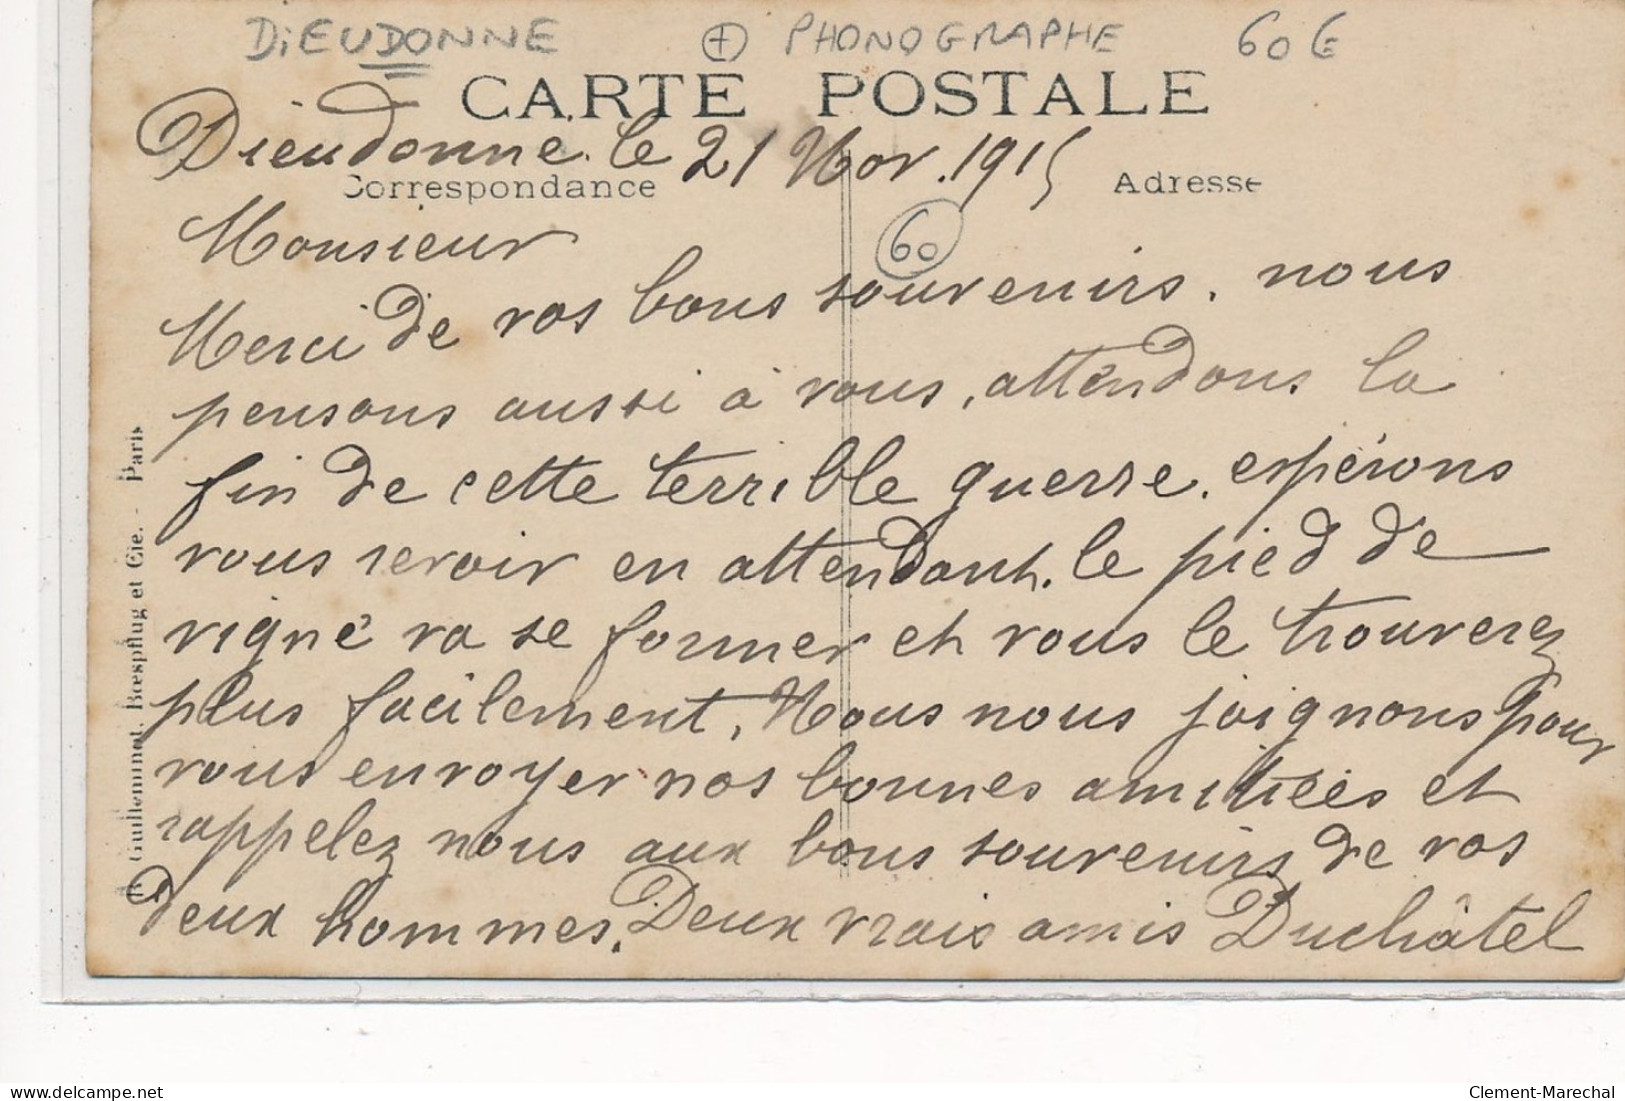 DiEUDONNE + PHONOGRAPHE 60 €
CARTE POSTALE
Dieudonne. le 21 Nov. 1915
Correspondance Adresse
60
Monsieur
Merci de vos bons souvenirs. nous
pensons aussi à vous, attendons la
fin de cette terrible guerre. espérons
vous revoir en attendant. le pied de
vigne va se former et vous le trouverez
plus facilement, Nous nous joignons pour
vous envoyer nos bonnes amitiées et
rappelez nous aux bons souvenirs de vos
deux hommes. Deux vrais amis Duchâtel
Guilleminot, Bœspflug et Cie. - Paris
delcampe.net
Clement-Marechal